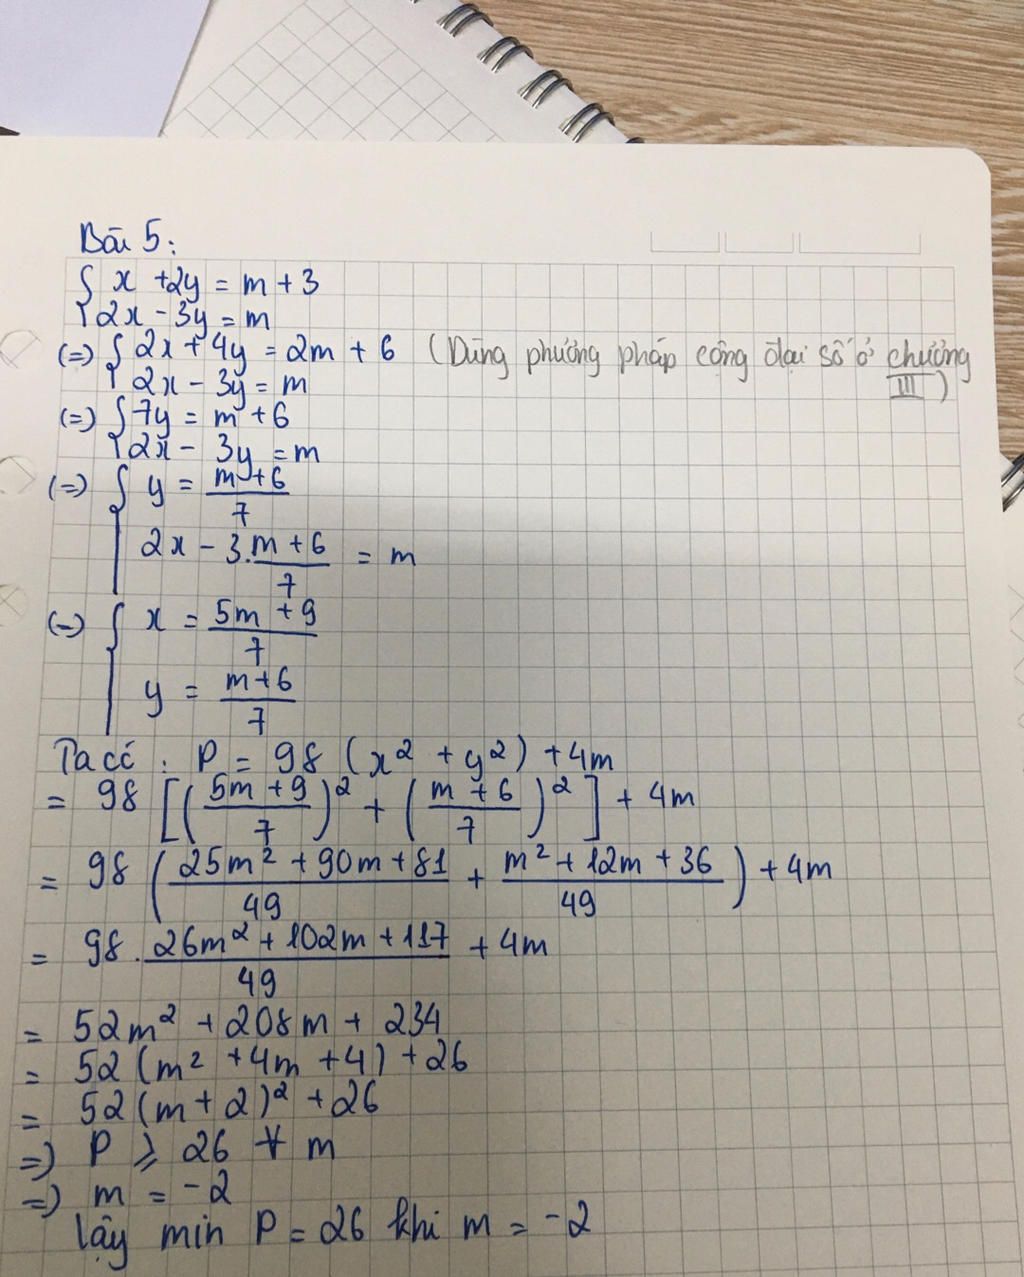 Bài 5:
{ x + 2y = m + 3
{ 2x - 3y = m
(=) { 2x + 4y = 2m + 6 (Dùng phương pháp cộng đại số ở chương
{ 2x - 3y = m III)
(=) { 7y = m + 6
{ 2x - 3y = m
(=) { y = \frac{m+6}{7}
{ 2x - 3.\frac{m+6}{7} = m
(=) { x = \frac{5m+9}{7}
{ y = \frac{m+6}{7}
Ta có: P = 98 (x² + y²) + 4m
= 98 [(\frac{5m+9}{7})² + (\frac{m+6}{7})²] + 4m
= 98 (\frac{25m² + 90m + 81}{49} + \frac{m² + 12m + 36}{49}) + 4m
= 98 . \frac{26m² + 102m + 117}{49} + 4m
= 52m² + 208m + 234
= 52 (m² + 4m + 4) + 26
= 52 (m + 2)² + 26
=) P ⩾ 26 ∀ m
=) m = -2
Vậy min P = 26 khi m = -2